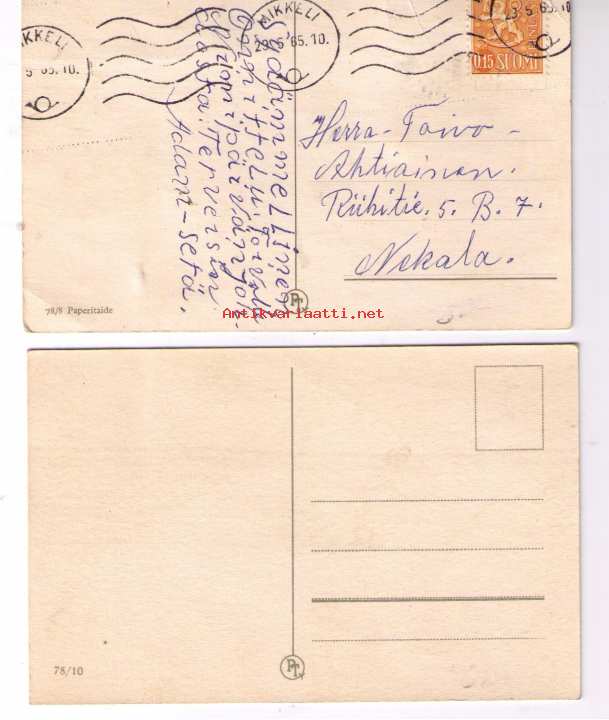 MIKKELI
5 65.10.
MIKKELI
29.5 65.10.
0.15 SUOMI
Sydämmelliner
Onnittelu. Toivolle
Nimipäivän joh-
dosta. Terveisin
Adam-setä.
Herra- Toivo -
Ahtiainen.
Riihitie. 5. B. 7.
Nekala.
78/8 Paperitaide
PT
Antikvariaatti.net
78/10
PT